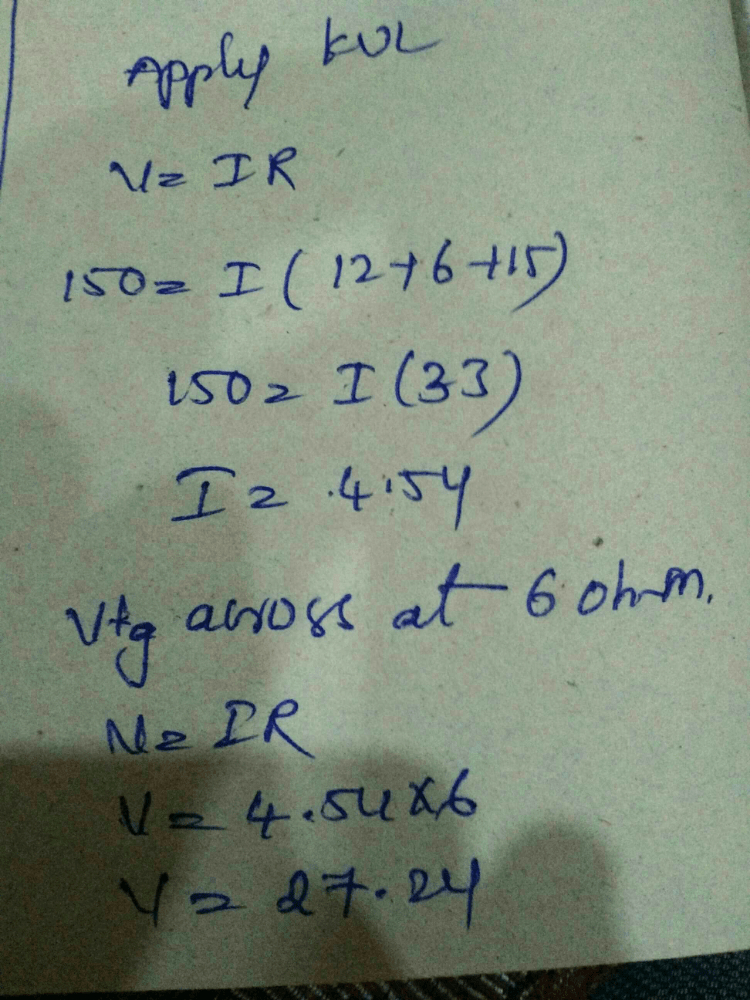 Apply KVL
V= IR
150= I ( 12+6+15)
150= I (33)
I= 4.54
Vtg across at 6 ohm.
V= IR
V= 4.54x6
V= 27.24